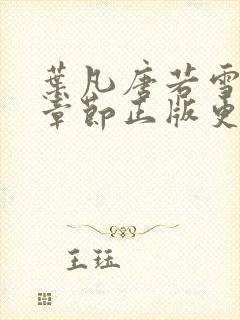 葉凡唐若雪
章節正版更
王珏